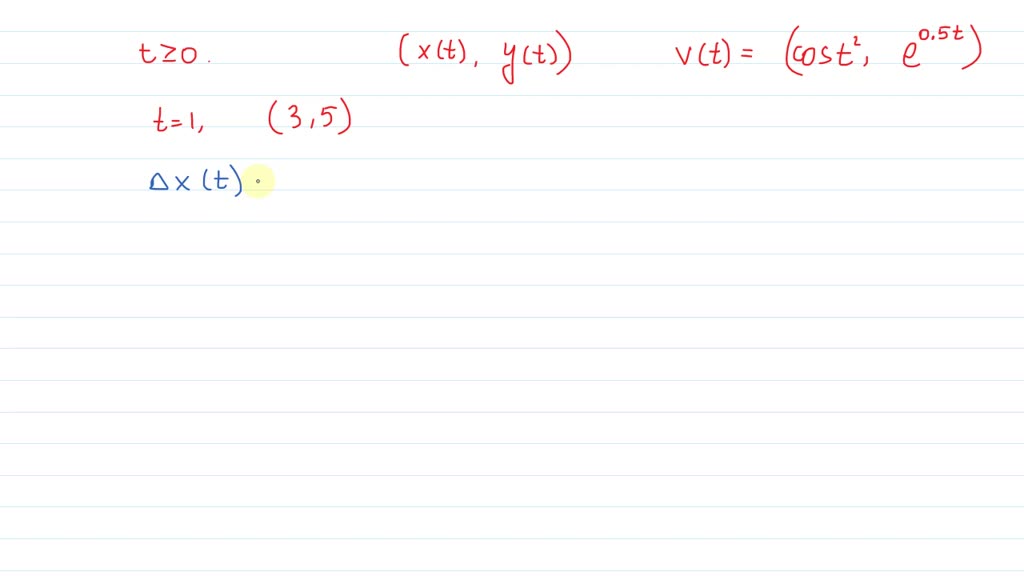 t≥0. (x(t), y(t)) v(t) = (cost², e^0.5t)
t=1, (3,5)
Δx(t)